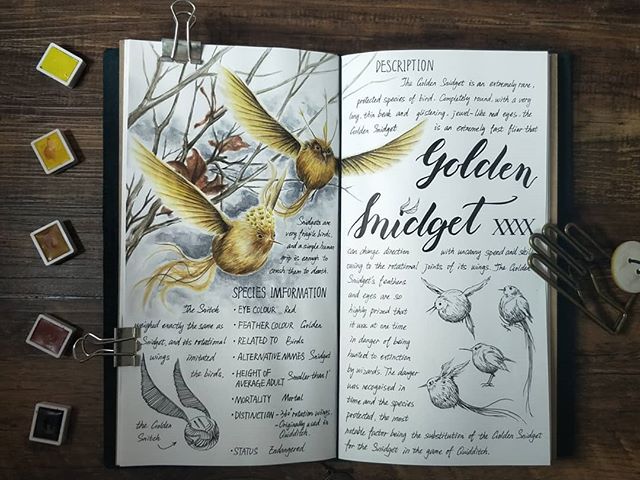 Snidgets are
very fragile birds,
and a simple human
grip is enough to
crush them to death.
SPECIES IMFORMATION
The Snitch
weighed exactly the same as
Snidget, and its rotational
wings imitated
the birds.
the Golden
Snitch
• EYE COLOUR Red
• FEATHER COLOUR Golden
• RELATED TO Birds
• ALTERNATIVE NAMES Snidget
• HEIGHT OF
AVERAGE ADULT Smaller than 1'
• MORTALITY Mortal
• DISTINCTION - 360° rotation wings.
- Originally used in
Quidditch.
• STATUS Endangered
DESCRIPTION
The Golden Snidget is an extremely rare,
protected species of bird. Completely round, with a very
long, thin beak and glistening, jewel-like red eyes, the
Golden Snidget is an extremely fast flier that
Golden
Snidget XXXX
can change direction with uncanny speed and skill
owing to the rotational joints of its wings. The Golden
Snidget's feathers
and eyes are so
highly prized that
it was at one time
in danger of being
hunted to extinction
by wizards. The danger
was recognised in
time and the species
protected, the most
notable factor being the substitution of the Golden Snidget
for the Snidget in the game of Quidditch.